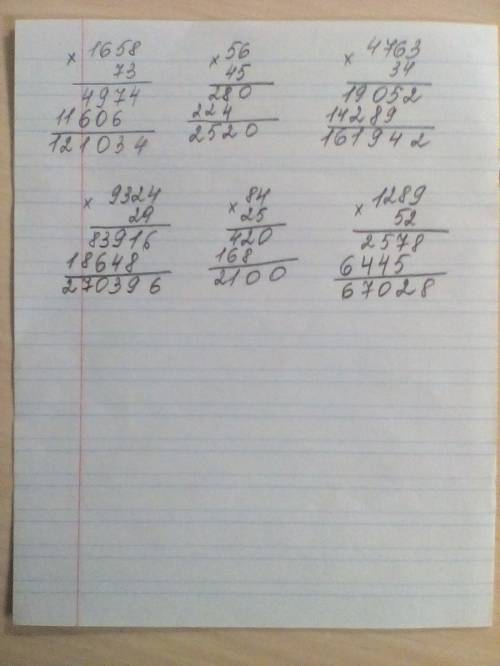 × 1658 × 56 × 4763
73 45 34
4974 280 19052
11606 224 14289
121034 2520 161942
× 9324 × 84 × 1289
29 25 52
83916 420 2578
18648 168 6445
270396 2100 67028